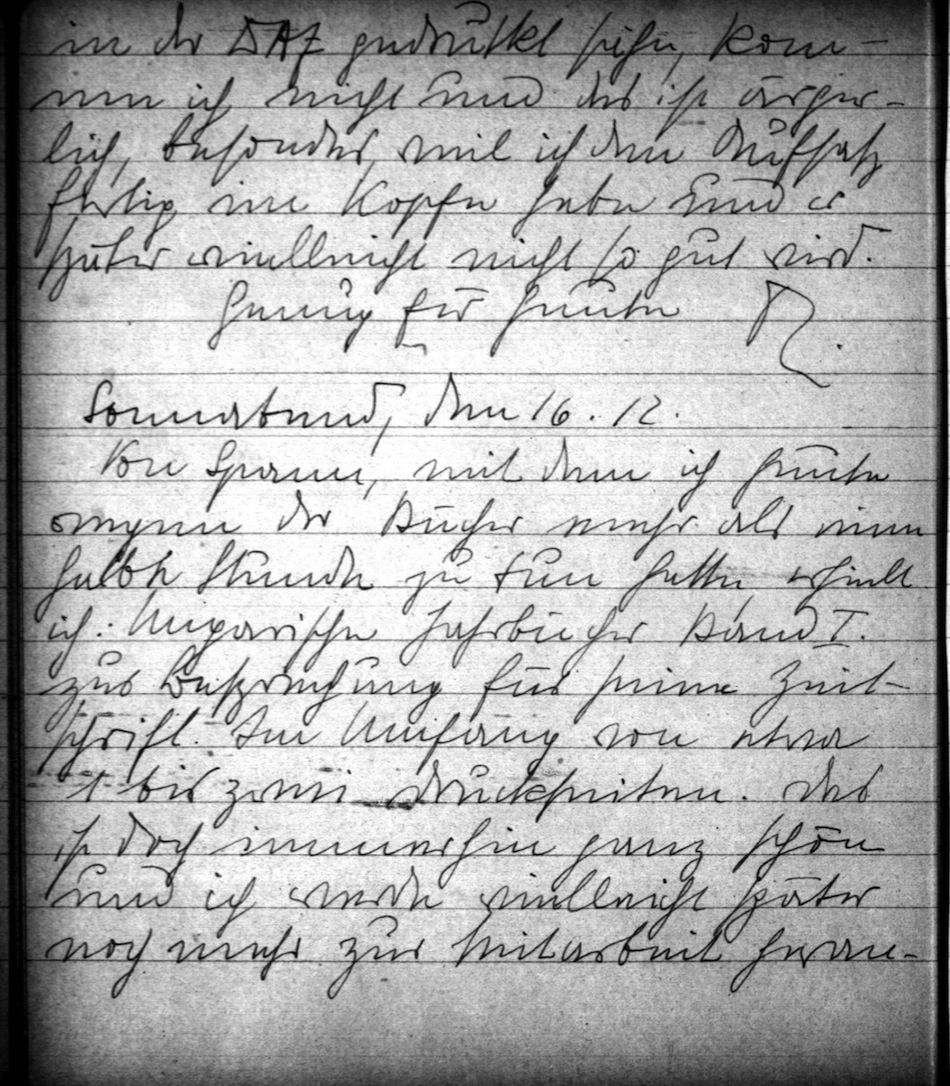 in der DAZ gedruckt sehen, kom-
men ich nicht und das ist ärger-
lich, besonders, weil ich den Aufsatz
fertig im Kopfe habe und er
später vielleicht nicht so gut wird.
Genug für heute R.
Sonnabend, den 16. 12.
Von Spann, mit dem ich heute
wegen der Bücher mehr als eine
halbe Stunde zu tun hatte, erhielt
ich: Ungarische Jahrbücher Band I.
zur Besprechung für seine Zeit-
schrift. Im Umfang von etwa
1 bis zwei Druckseiten. Das
ist doch immerhin ganz schön
und ich werde vielleicht später
noch mehr zur Mitarbeit heran-